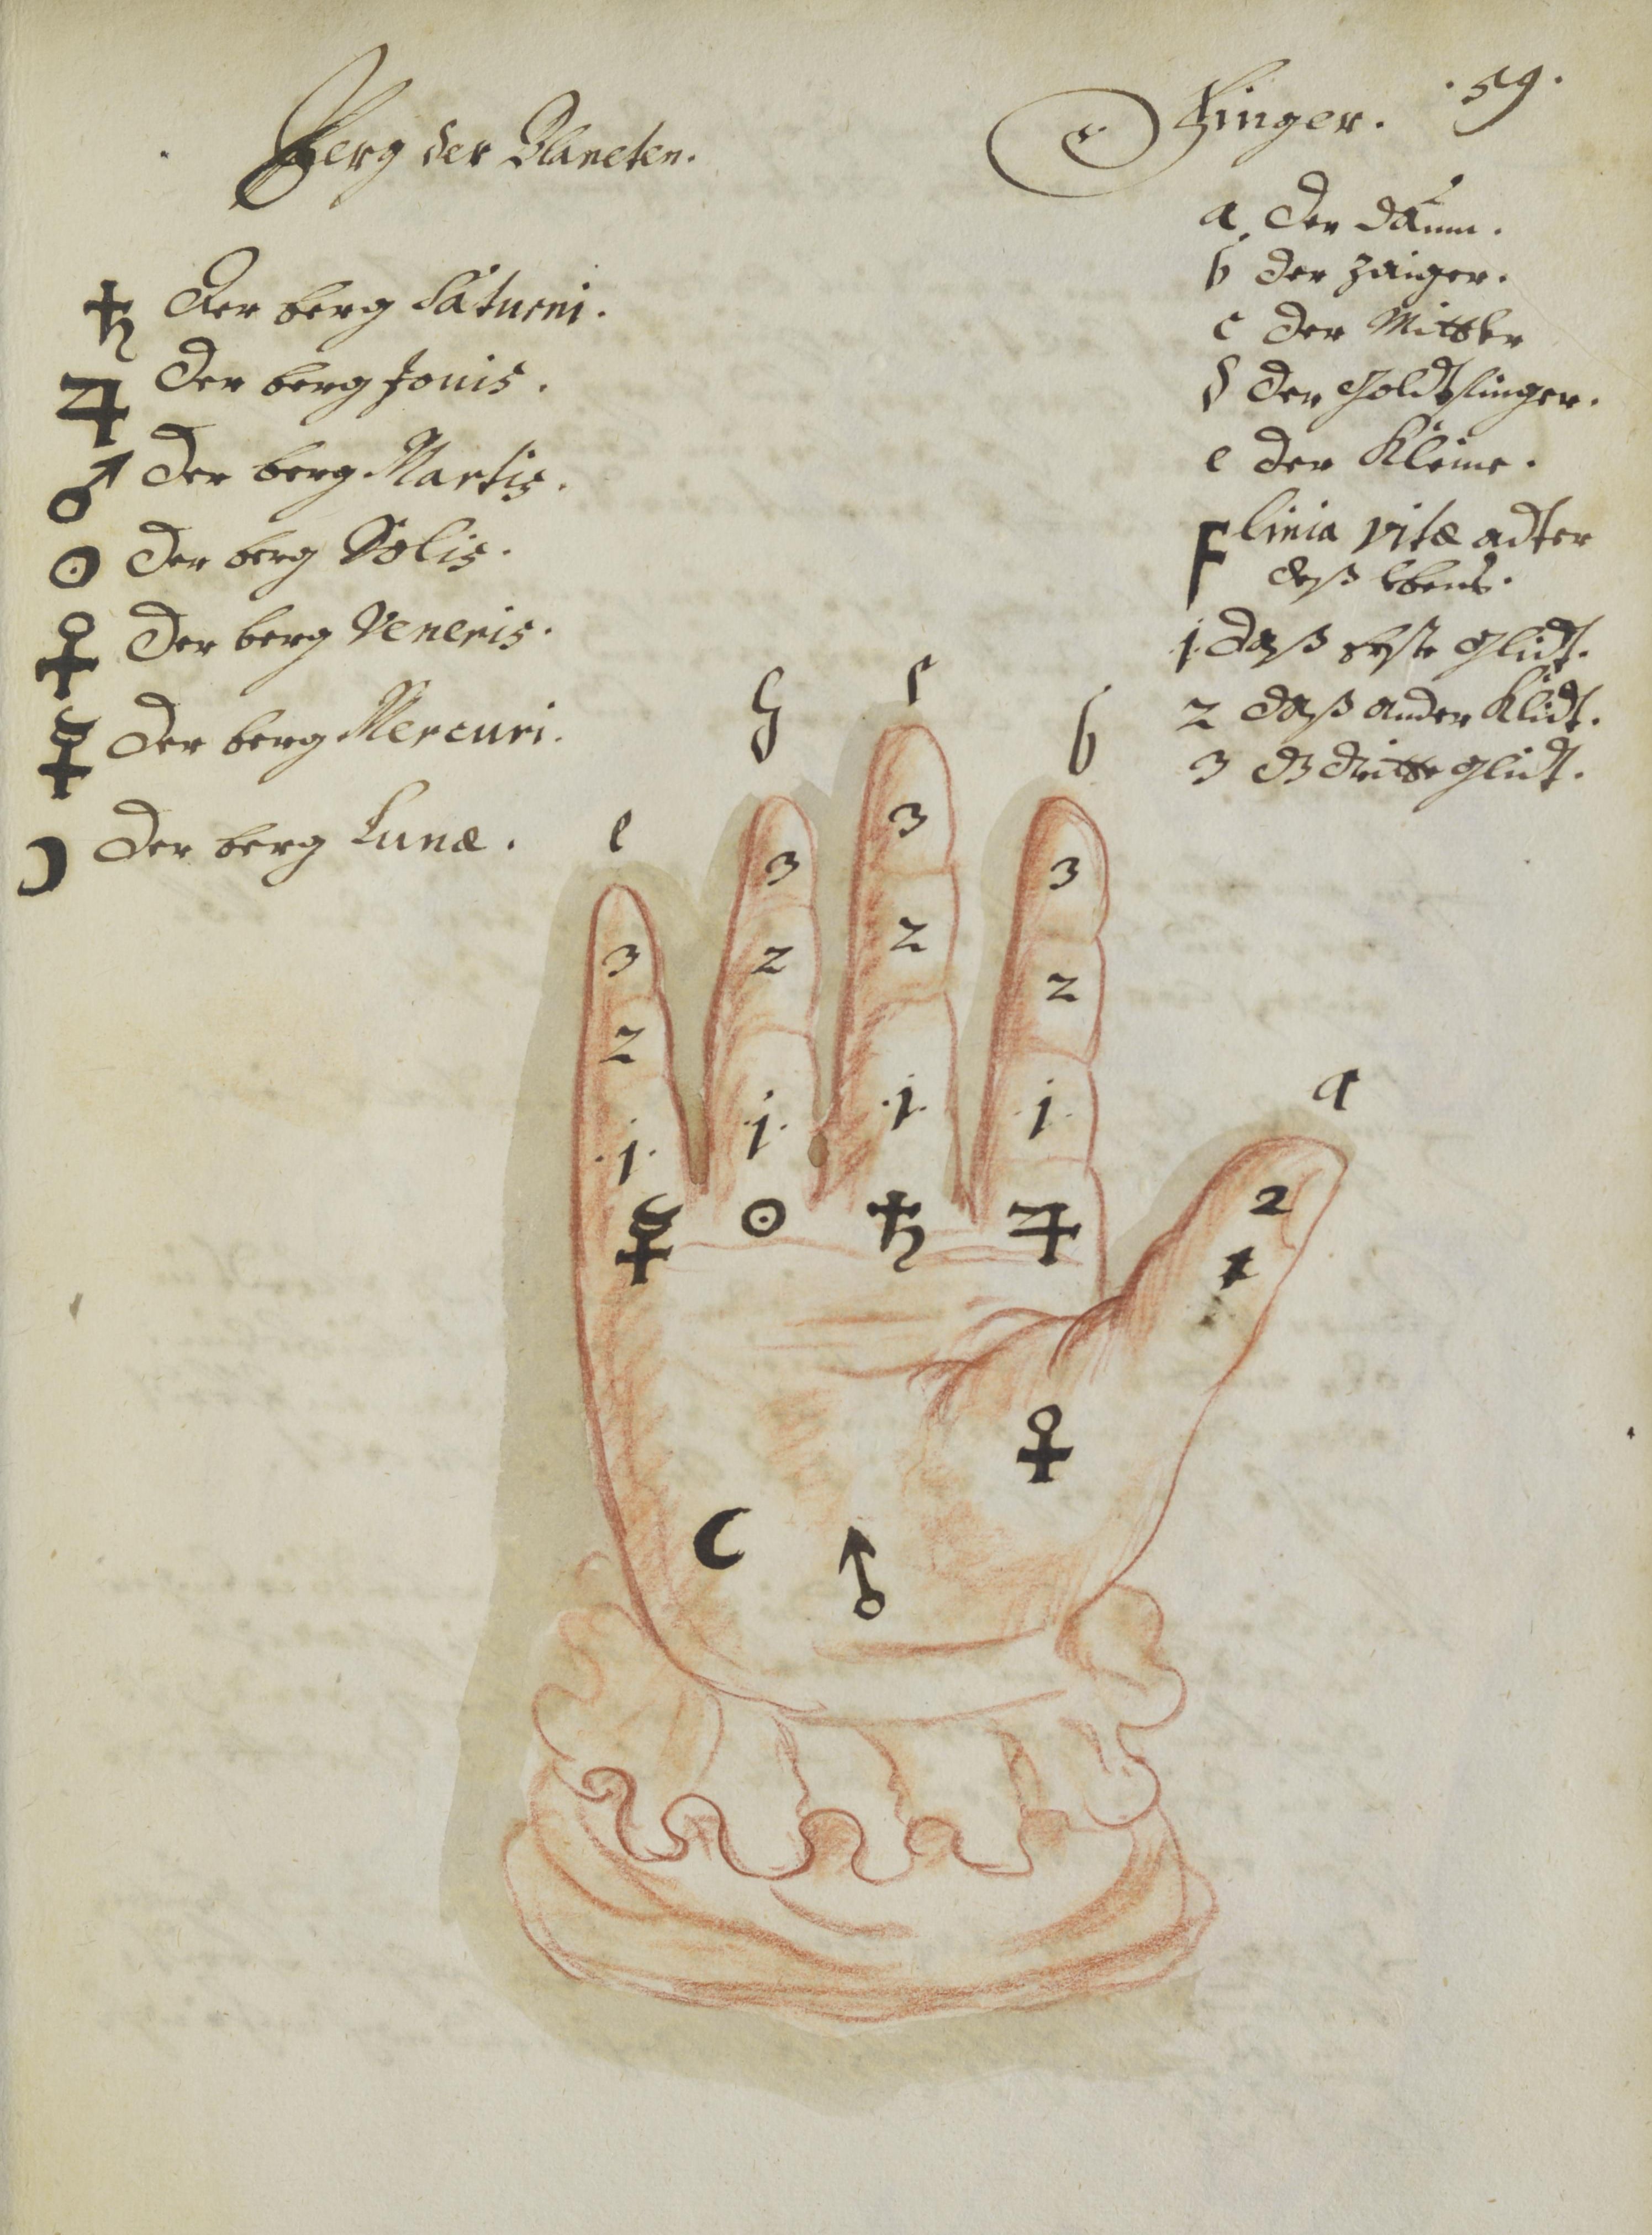 Berg der Planeten.
Finger.
.59.
♄ Der berg Saturni.
♃ Der berg Jouis.
♂ Der berg Martis.
☉ Der berg Solis.
♀ Der berg Veneris.
☿ Der berg Mercuri.
☽ Der berg Lunæ.
a. Der daum.
b Der zaiger.
c Der Mittler
d Der Goldtfinger.
e Der Kleine.
F linia vitæ adter
deß lebens.
1. daß erste glidt.
2 daß ander Klidt.
3 dz dritte glidt.
e
d
c
b
a
3
3
3
3
2
2
2
2
.1.
.1.
.1.
.1.
2
1
☿ ☉ ♄ ♃
♀
☾ ♂